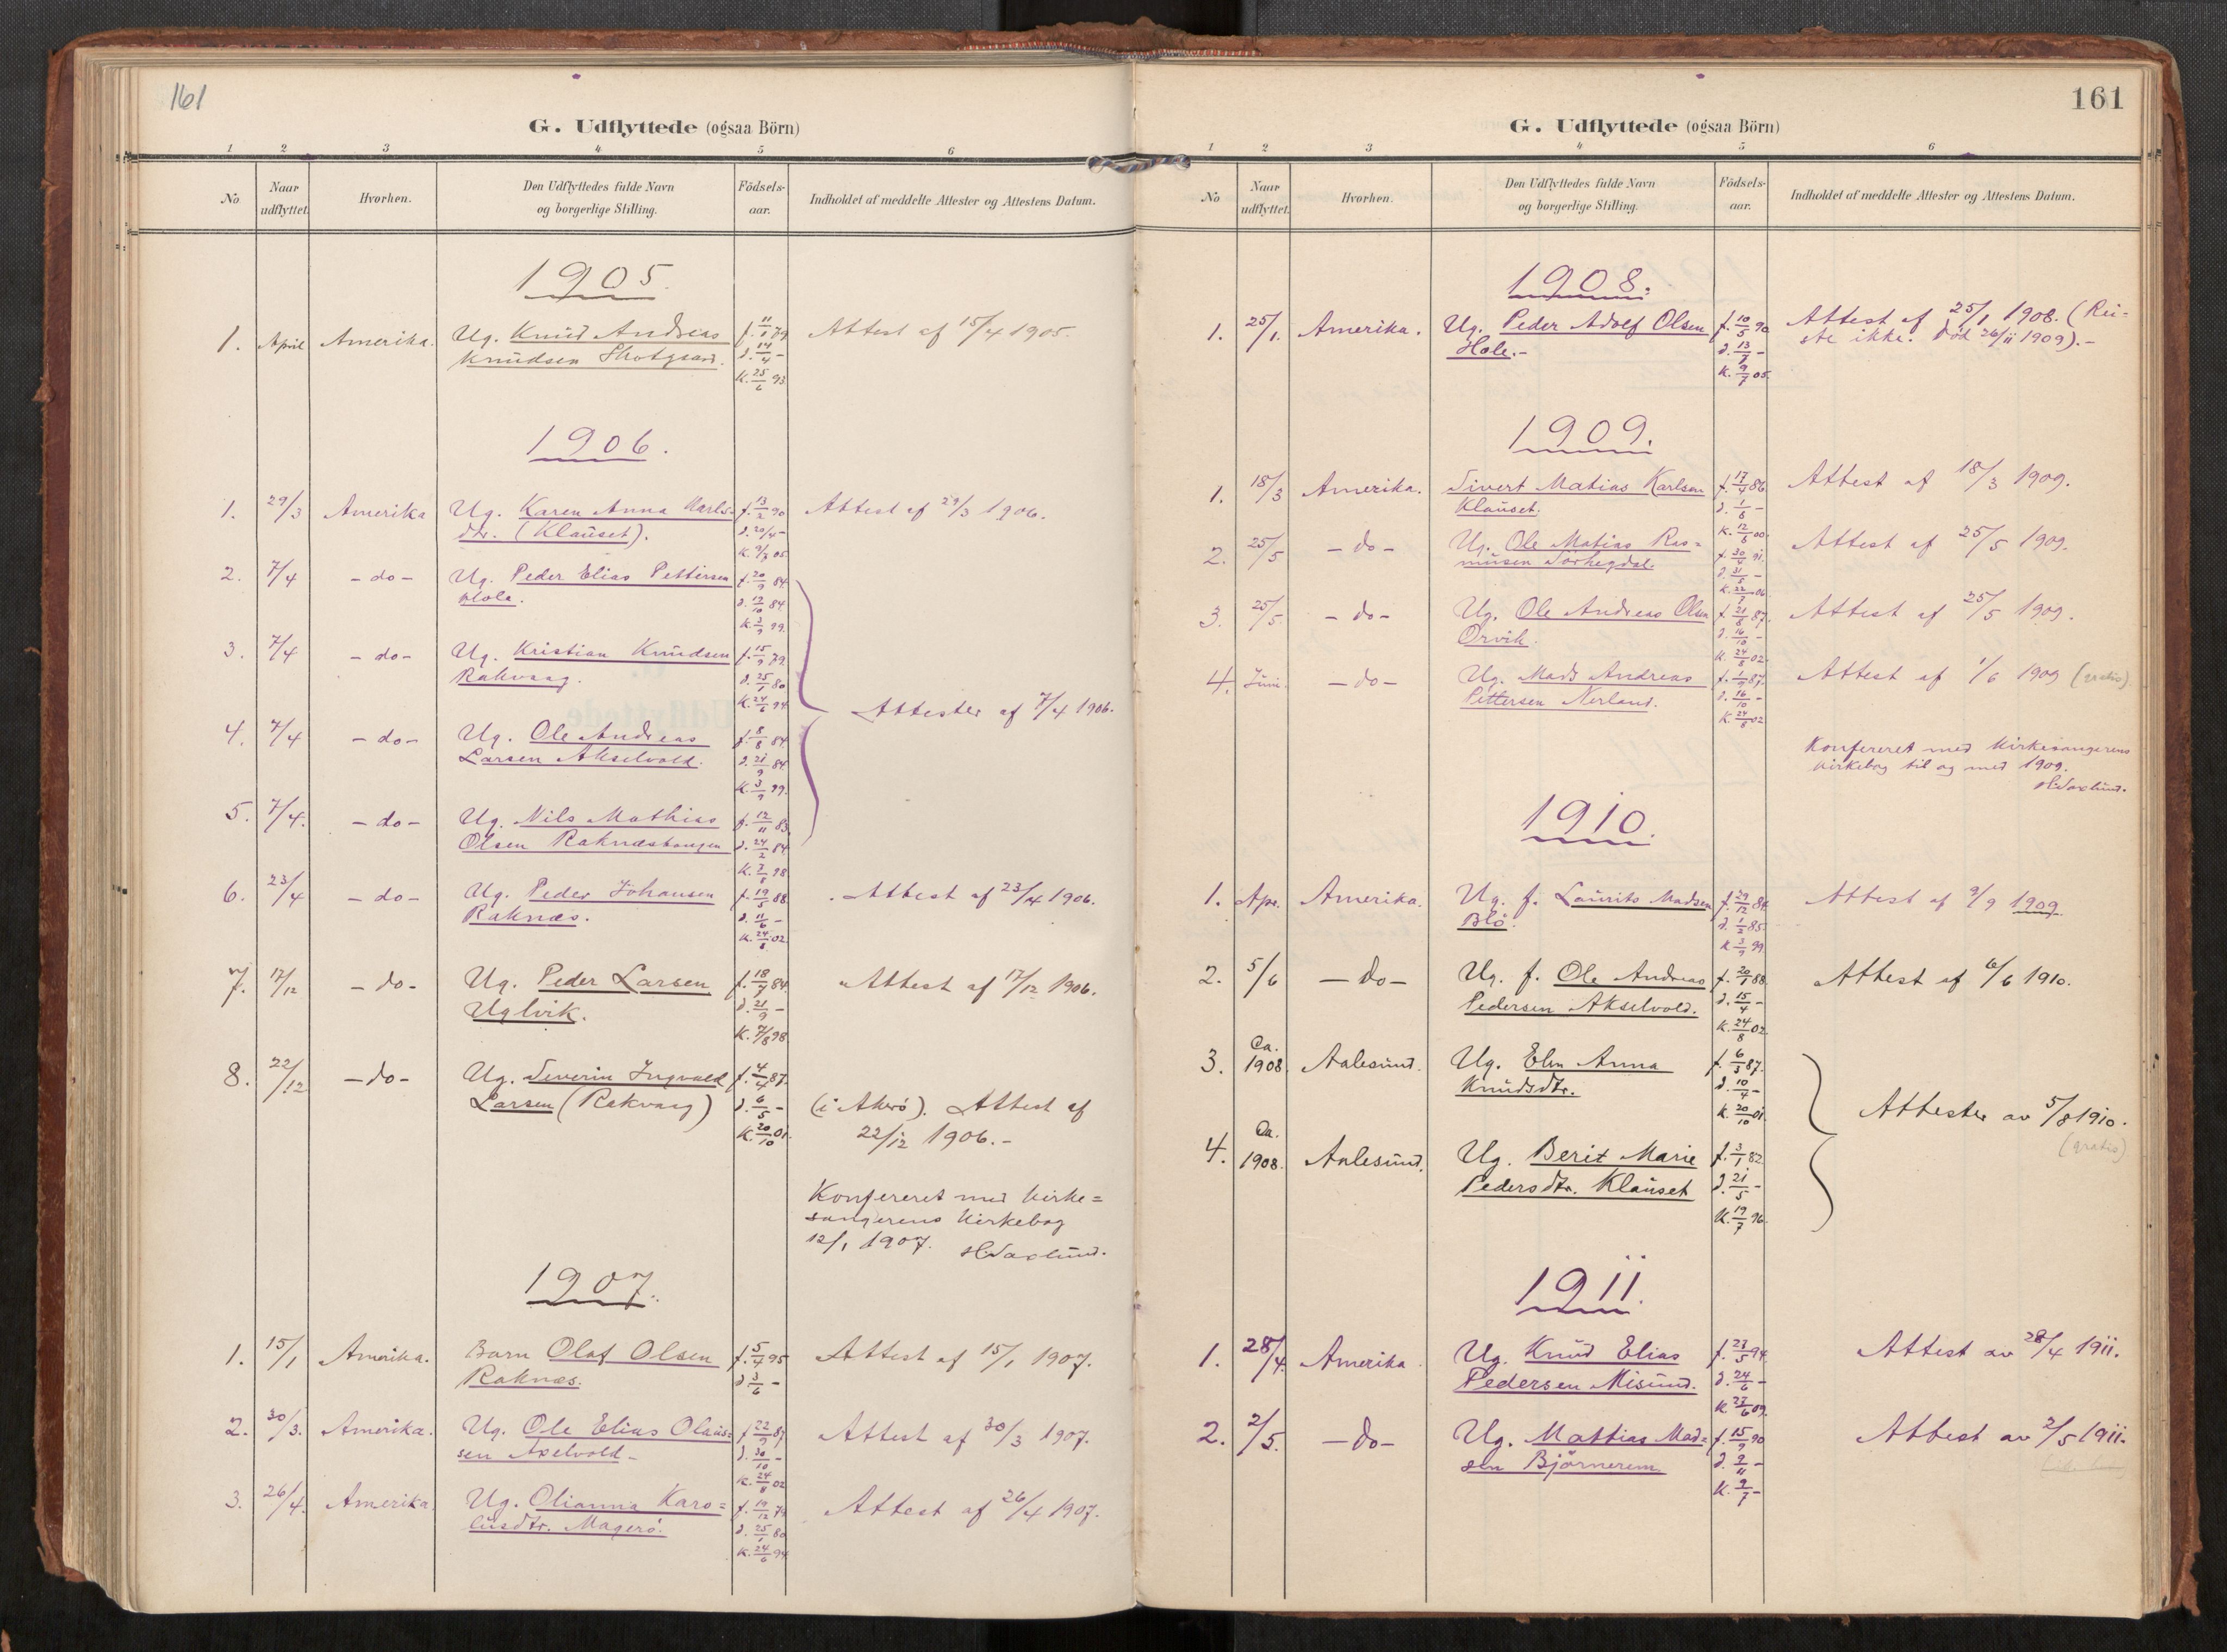 161
G. Udflyttede (ogsaa Börn)
1 2 3 4 5 6
No. Naar udflyttet. Hvorhen. Den Udflyttedes fulde Navn og borgerlige Stilling. Födsels-aar. Indholdet af meddelte Attester og Attestens Datum.
1905.
1. April Amerika. Ug. Knud Andreas f. 11/1 79 Attest af 15/4 1905.
Knudsen d. 14/4 -
K. 25/6 93.
1906.
1. 29/3 Amerika Ug. Karen Anna Karls- f. 13/2 90 Attest af 29/3 1906.
dtr. (Klauset). d. 20/4 -
K. 9/7 05
2. 7/4 - do - Ug. Peder Elias Pettersen f. 20/9 84.
Hole. d. 19/10 84.
K. 3/9 99.
3. 7/4 - do - Ug. Kristian Knudsen f. 15/9 79
Rakvaag. d. 25/1 80
K. 24/6 94
Attester af 7/4 1906.
4. 7/4 - do - Ug. Ole Andreas f. 8/8 84.
Larsen Akselvold. d. 21/9 84.
K. 3/9 99.
5. 7/4. - do - Ug. Nils Mathias f. 12/11 83
Olsen Raknæshaugen d. 24/2 84
K. 7/8 98
6. 23/4 - do - Ug. Peder Johansen f. 19/5 88. Attest af 23/4 1906.
Raknæs. d. 11/6 -
K. 24/8 02.
7. 17/12 - do - Ug. Peder Larsen f. 18/7 84. Attest af 17/12 1906.
Uglvik. d. 21/9 -
K. 7/8 98.
8. 22/12 - do - Ug. Severin Ingvald f. 4/4 87.
Larsen (Rakvaag) d. 6/5 - (i Akerö). Attest af
K. 20/10 01. 22/12 1906. -
Konfereret med Kirke=
sangerens Kirkebog
12/1 1907. H. Saxlund.
1907.
1. 15/1 Amerika. Barn Olaf Olsen f. 5/4 95 Attest af 15/1 1907.
Raknæs. d. 3/6 -
2. 30/3. Amerika. Ug. Ole Elias Olaus- f. 22/9 87 Attest af 30/3 1907.
sen Axelvold - d. 30/10 -
K. 24/8 02
3. 26/4. Amerika. Ug. Olianna Karo= f. 19/12 79 Attest af 26/4 1907.
lusdtr. Magerö. d. 25/1 80
K. 24/6 94
161
G. Udflyttede (ogsaa Börn)
1 2 3 4 5 6
No Naar udflyttet. Hvorhen. Den Udflyttedes fulde Navn og borgerlige Stilling. Födsels-aar. Indholdet af meddelte Attester og Attestens Datum.
1908.
1. 25/1. Amerika. Ug. Peder Adolf Olsen f. 10/5 90 Attest af 25/1 1908. (Rei-
Hole. - d. 13/7 - ste ikke. Död 26/11 1909). -
K. 9/7 05.
1909.
1. 18/3 Amerika. Sivert Matias Karlsen f. 17/4 86 Attest af 18/3 1909.
Klauset. d. 1/6 -
K. 12/8 00.
2. 25/5 - do - Ug. Ole Matias Ras= Attest af 25/5 1909.
musen f. 30/4 91.
d. 31/5 -
K. 22/7 06
3. 25/5 - do - Ug. Ole Andreas Olsen f. 21/8 87. Attest af 25/5 1909.
Orvik. d. 16/10 -
K. 24/8 02.
4. Juni - do - Ug. Mads Andreas f. 1/9 87. Attest af 1/6 1909 (gratis)
Pettersen Nerland. d. 16/10 -
K. 24/8 02
Konfereret med Kirkesangerens
Kirkebog til og med 1909.
H. Saxlund.
1910.
1. Apr. Amerika. Ug. f. Laurits Madsen f. 29/12 84. Attest af 9/9 1909
Blö. d. 1/2 85.
K. 3/9 99.
2. 5/6 - do - Ug. f. Ole Andreas f. 20/1 88. Attest af 6/6 1910.
Pedersen Akselvold. d. 15/4 -
K. 24/8 02.
3. Ca. 1908. Aalesund. Ug. Elen Anna f. 6/3 87.
Knudsdtr. d. 10/4 -
K. 20/10 01.
Attester av 5/8 1910.
(gratis)
4. Ca. 1908. Aalesund. Ug. Berit Marie f. 3/1 82.
Pedersdtr. Klauset d. 21/5 -
K. 19/7 96.
1911.
1. 28/4. Amerika. Ug. Knud Elias f. 23/5 94. Attest av 28/4 1911.
Pedersen Misund. d. 24/6 -
K. 27/6 09.
2. 2/5. - do - Ug. Mattias Mad= f. 15/9 90 Attest av 2/5 1911.
sen Björnerem. d. 2/11 -
K. 9/7 -